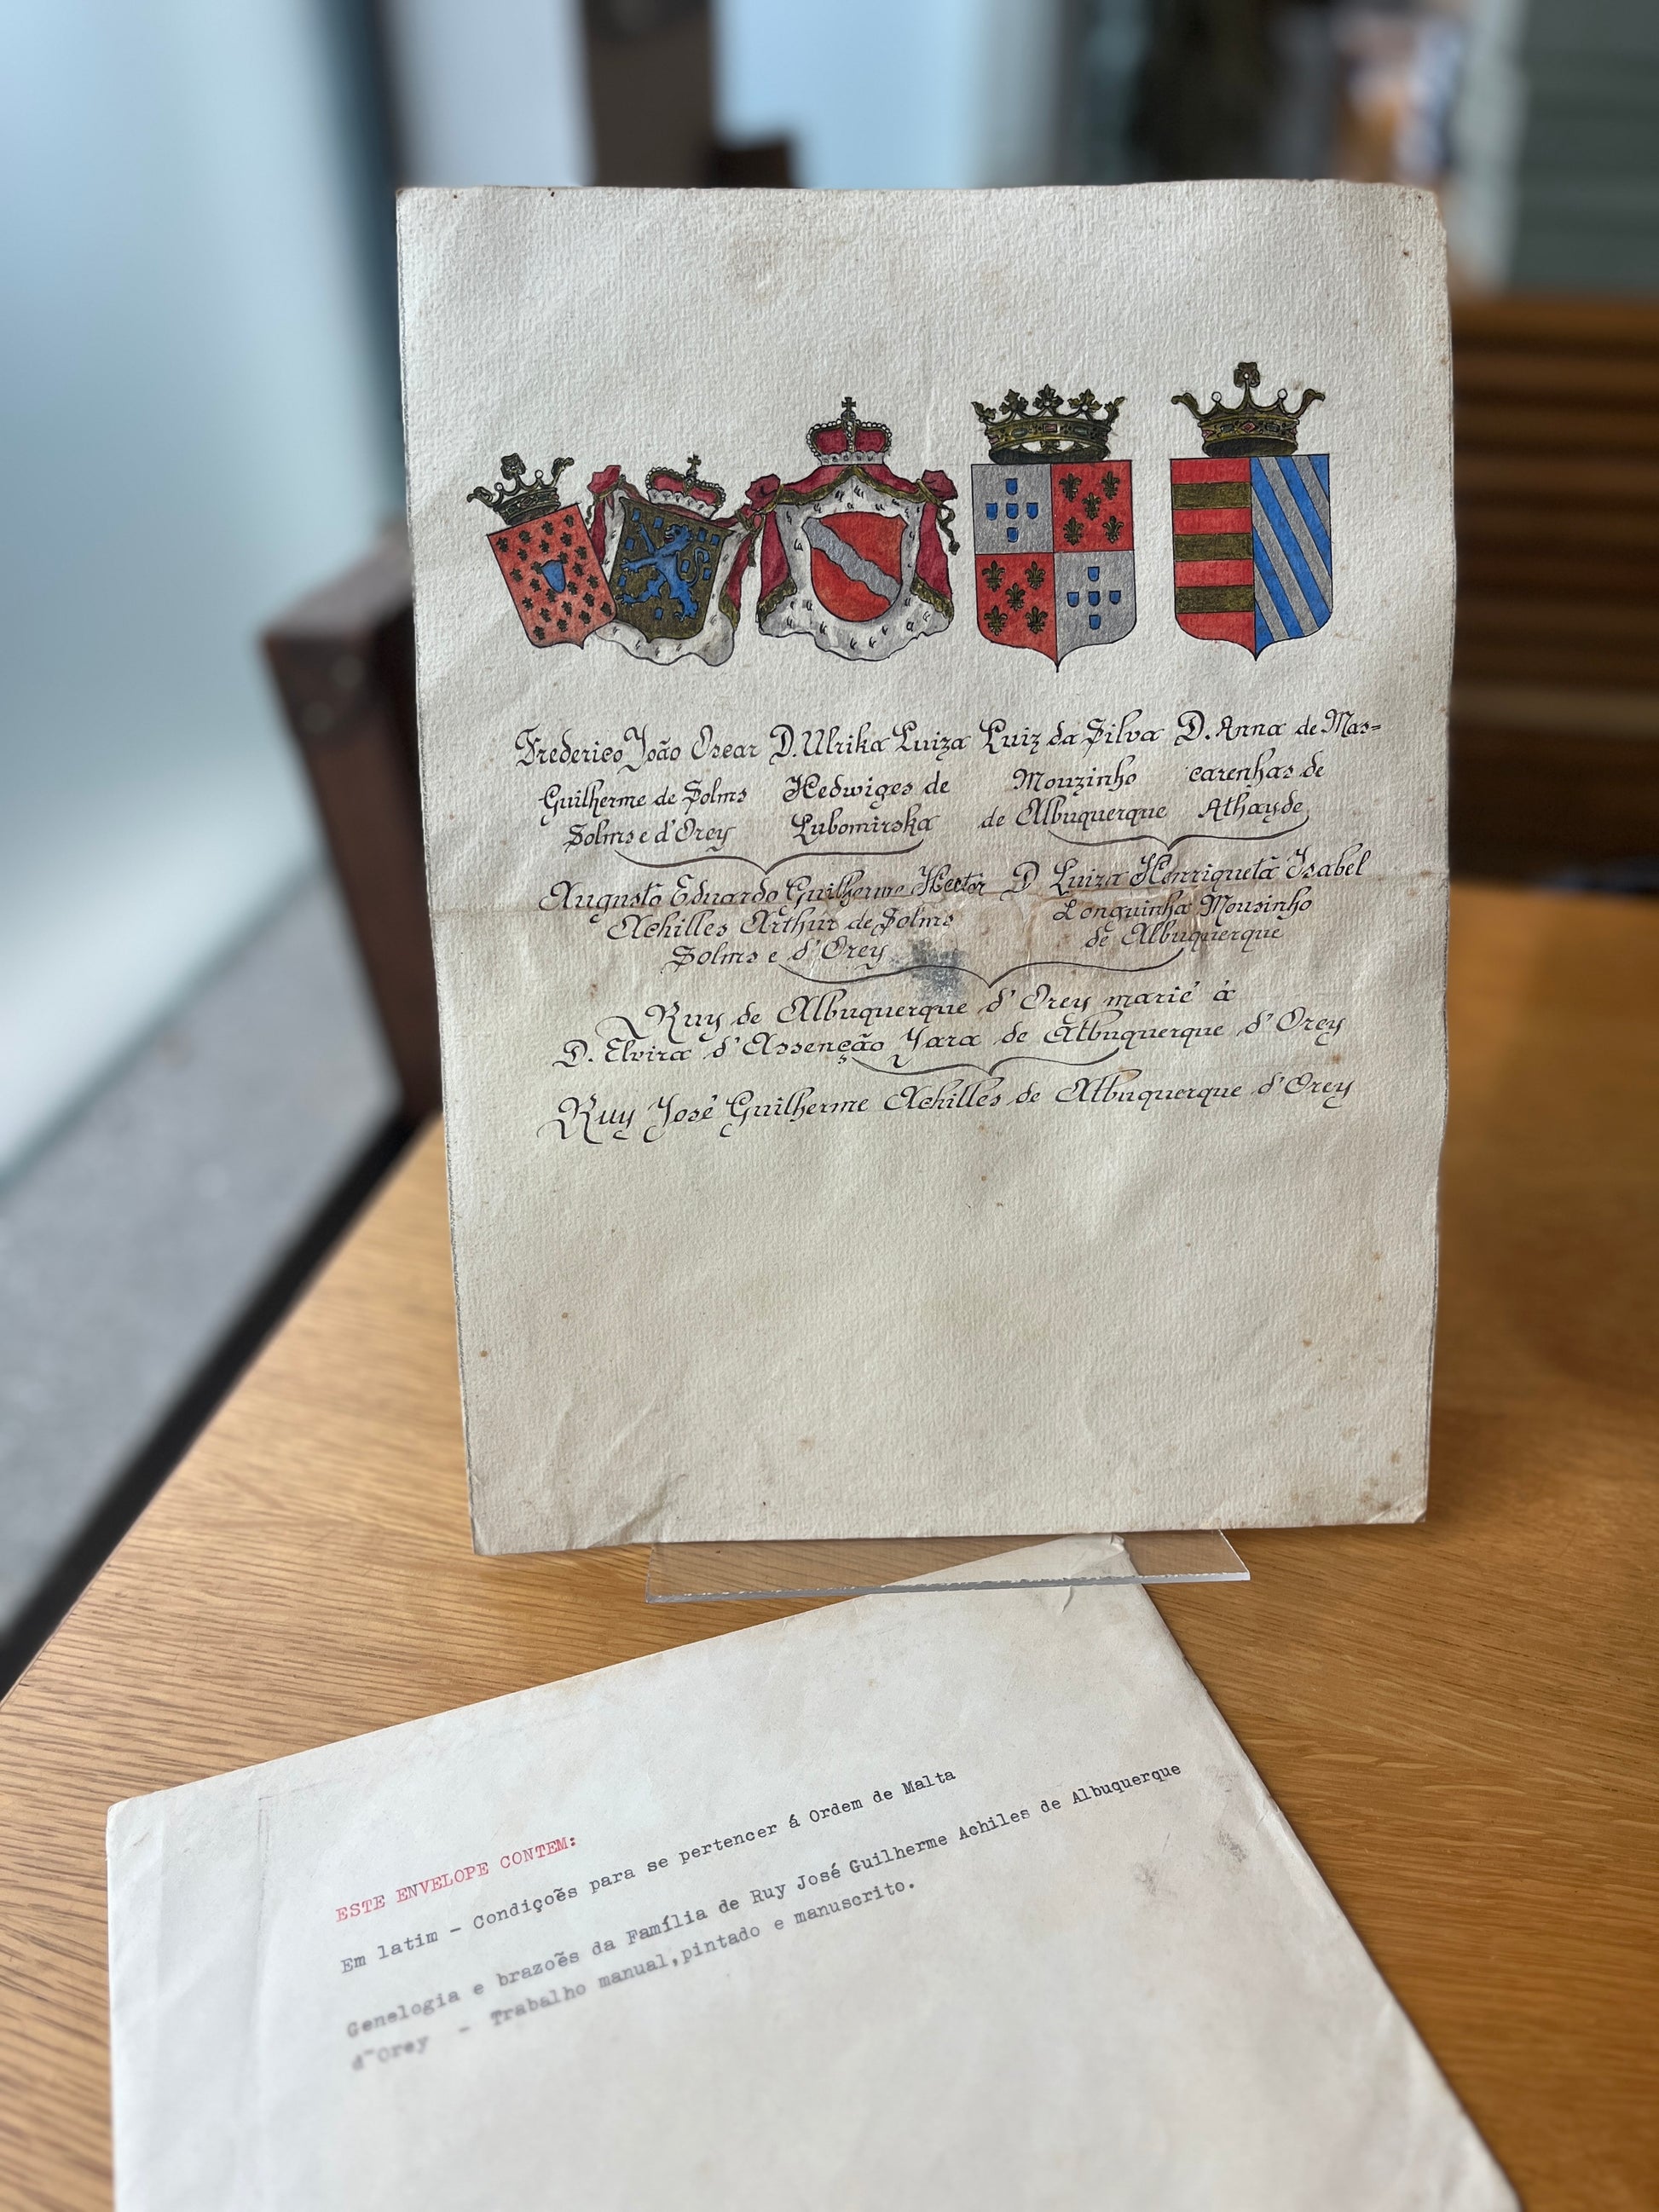 Frederico João Oscar D. Ulrika Luiza Luiz da Silva D. Anna de Mas=
Guilherme de Solms Hedwiges de Mouzinho carenhas de
Solms e d'Orey Lubomirska de Albuquerque Athayde
Augusto Eduardo Guilherme Hector D Luiza Henriqueta Isabel
Achilles Arthur de Solms Longuinha Mousinho
Solms e d'Orey de Albuquerque
Ruy de Albuquerque d'Orey marié à
D. Elvira d'Assenção Yara de Albuquerque d'Orey
Ruy José Guilherme Achilles de Albuquerque d'Orey
ESTE ENVELOPE CONTEM:
Em latim - Condiçoẽs para se pertencer á Ordem de Malta
Genelogia e brazoẽs da Família de Ruy José Guilherme Achiles de Albuquerque
d~Orey - Trabalho manual,pintado e manuscrito.